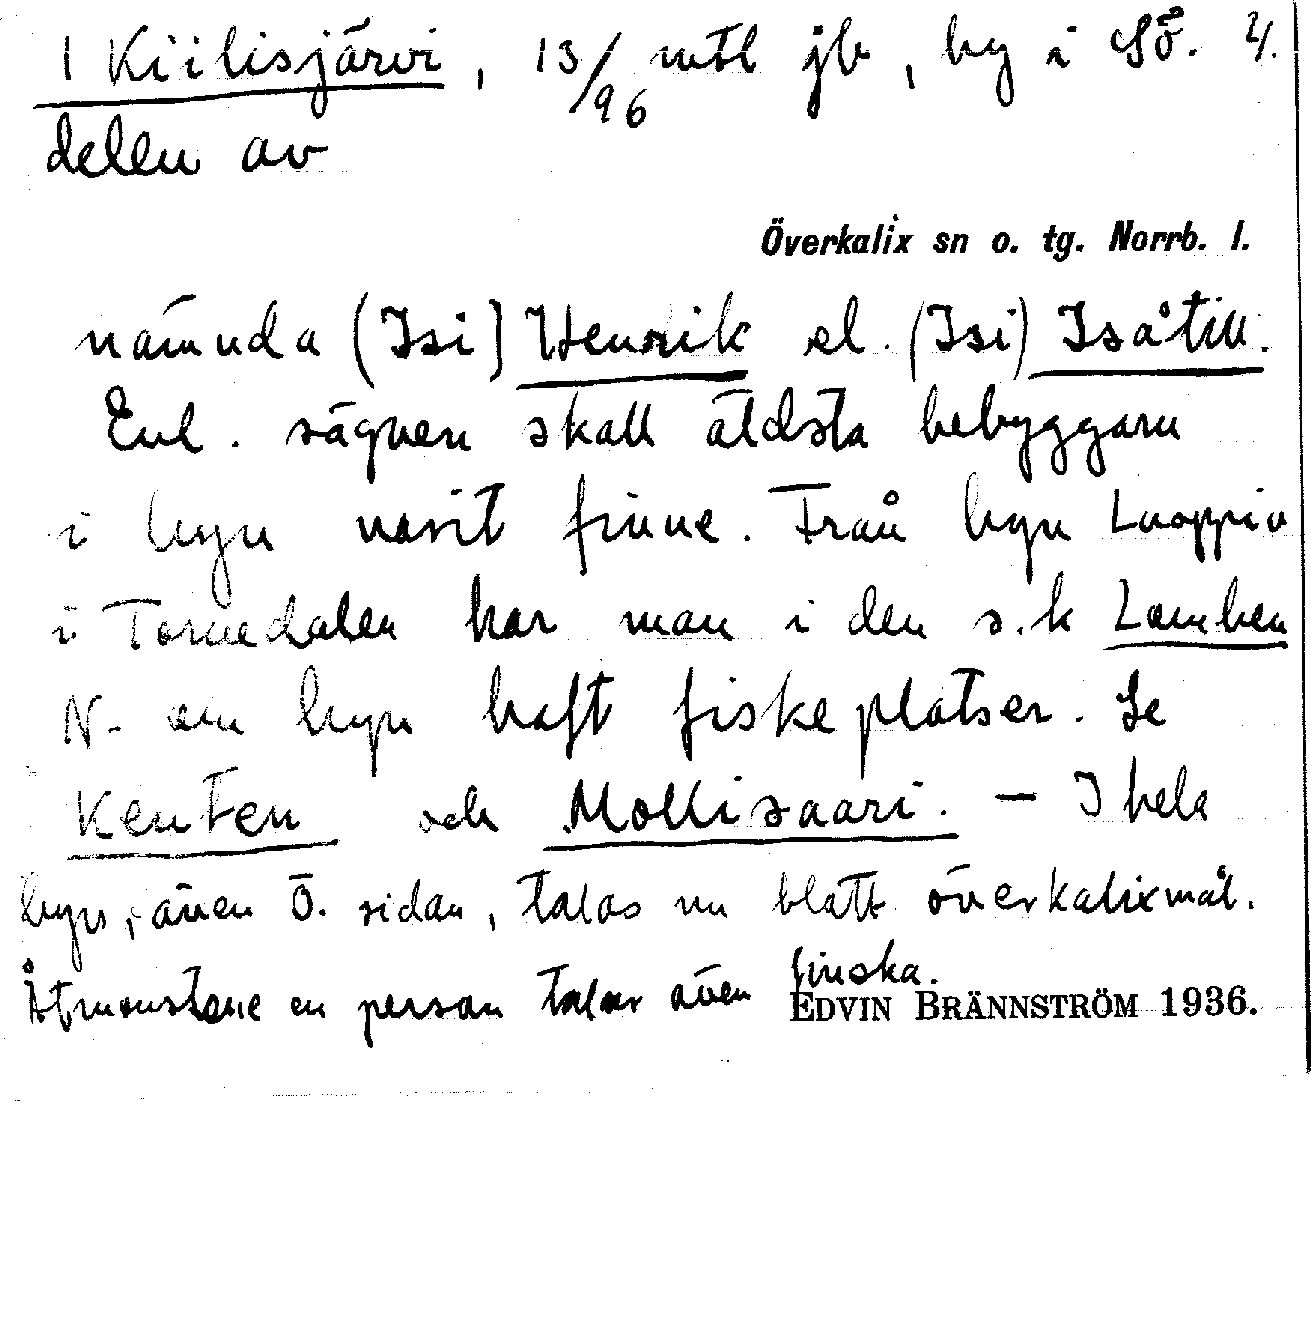 1 Kiilisjärvi, 13/96 mtl jb, by i SÖ.
delen av
Överkalix sn o. tg. Norrb. l.
nämnda (Isi] Henrik el. (Isi)
Enl. sägnen skall äldsta bebyggaren
i byn varit finne. Från byn Luoppio
i Tornedalen har man i den s.k Lomben
N. om byn haft fiskeplatser. Se
Kenten och Mollisaari. — I hela
byn, även Ö. sidan, talas nu blott överkalixmål.
Åtminstone en person talar även finska.
EDVIN BRÄNNSTRÖM 1936.